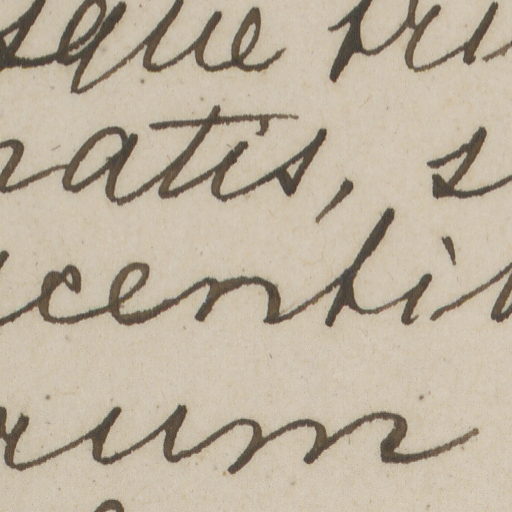 sque pri
ratis, s
centi
rum